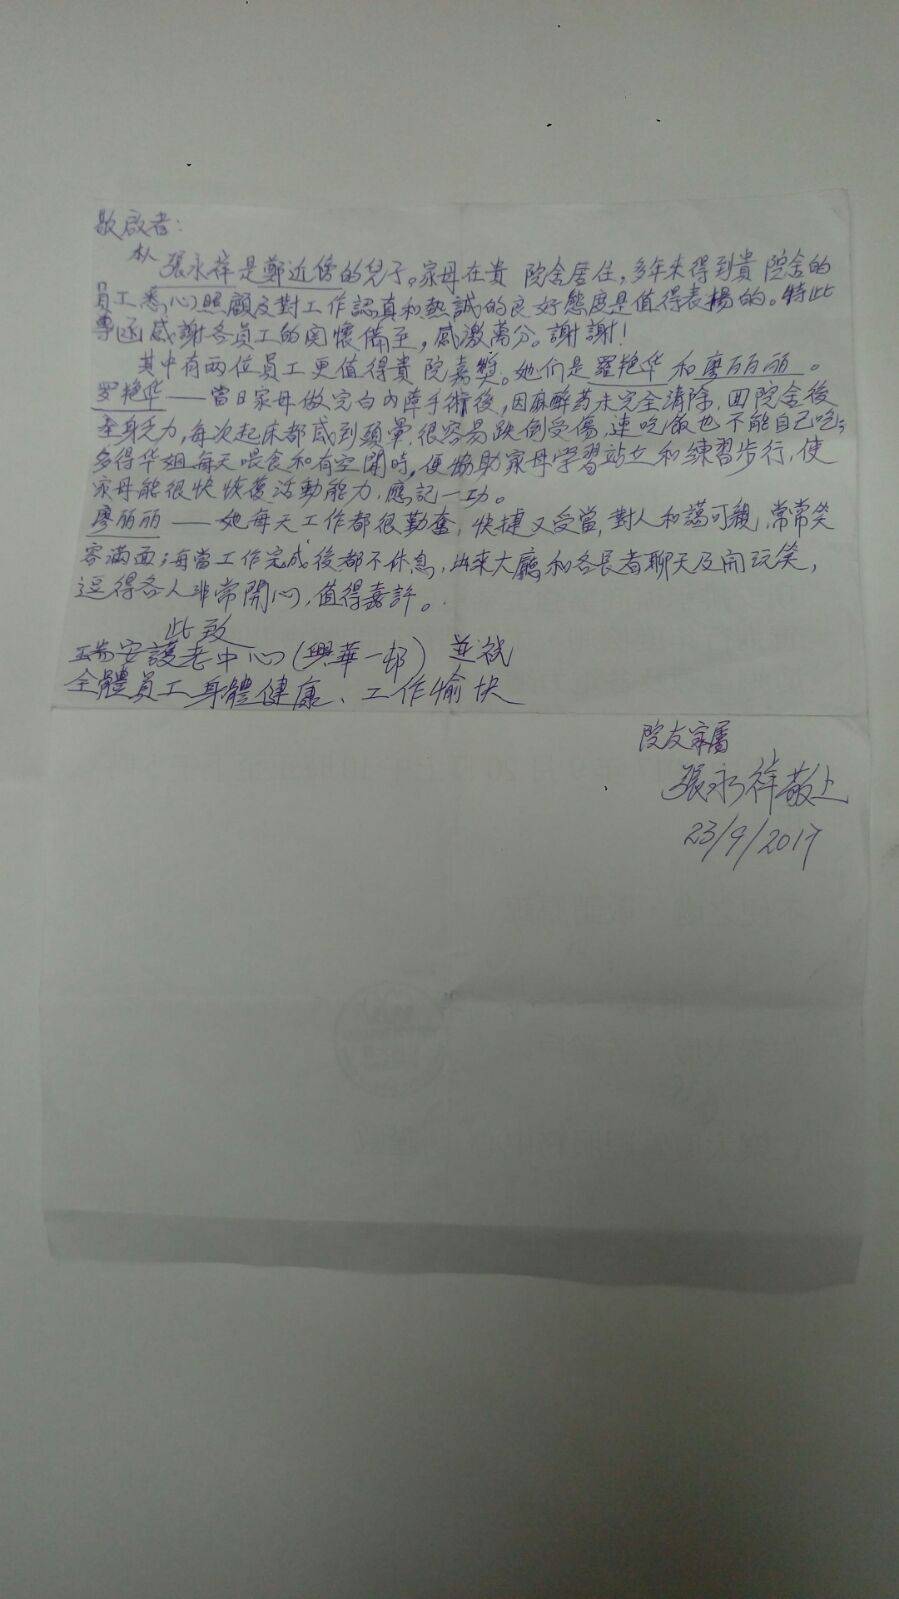 敬啟者:
本人張永祥是鄭近修的兒子。家母在貴 院舍居住,多年來得到貴 院舍的
員工悉心照顧及對工作認真和熱誠的良好態度是值得表揚的。特此
專函感謝各員工的関懷備至,感激萬分。謝謝!
其中有兩位員工更值得貴 院嘉獎。她們是羅艳华和廖丽丽。
罗艳华——當日家母做完白內障手術後,因麻醉药未完全清除,回院舍後
全身乏力,每次起床都感到頭暈,很容易跌倒受傷,連吃飯也不能自己吃;
多得华姐每天喂食和有空閒時,便協助家母學習站立和練習步行,使
家母能很快恢復活動能力,應記一功。
廖丽丽——她每天工作都很勤奮,快捷又妥當,對人和譪可親,常常笑
容滿面;每當工作完成後都不休息,出來大廳和各長者聊天及開玩笑,
逗得各人非常開心,值得嘉許。
此致
瑞安護老中心(興華一邨) 並祝
全體員工身體健康、工作愉快
院友家屬
張永祥敬上
23/9/2017